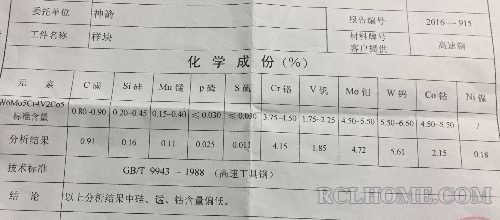 委托单位 神箭 报告编号 2016-915
工件名称 样块 材料牌号 客户提供 高速钢
化学成份(%)
元素 C碳 Si硅 Mn锰 P磷 S硫 Cr铬 V钒 Mo钼 W钨 Co钴 Ni镍
W6Mo5Cr4V2Co5 标准含量 0.80-0.90 0.20-0.45 0.15-0.40 ≤0.030 ≤0.030 3.75-4.50 1.75-2.25 4.50-5.50 5.50-6.50 4.50-5.50 /
分析结果 0.91 0.16 0.11 0.025 0.013 4.15 1.85 4.72 5.61 2.15 0.18
技术标准 GB/T 9943-1988(高速工具钢)
结论 以上分析结果中硅、锰、钴含量偏低。
RCLHOME.COM